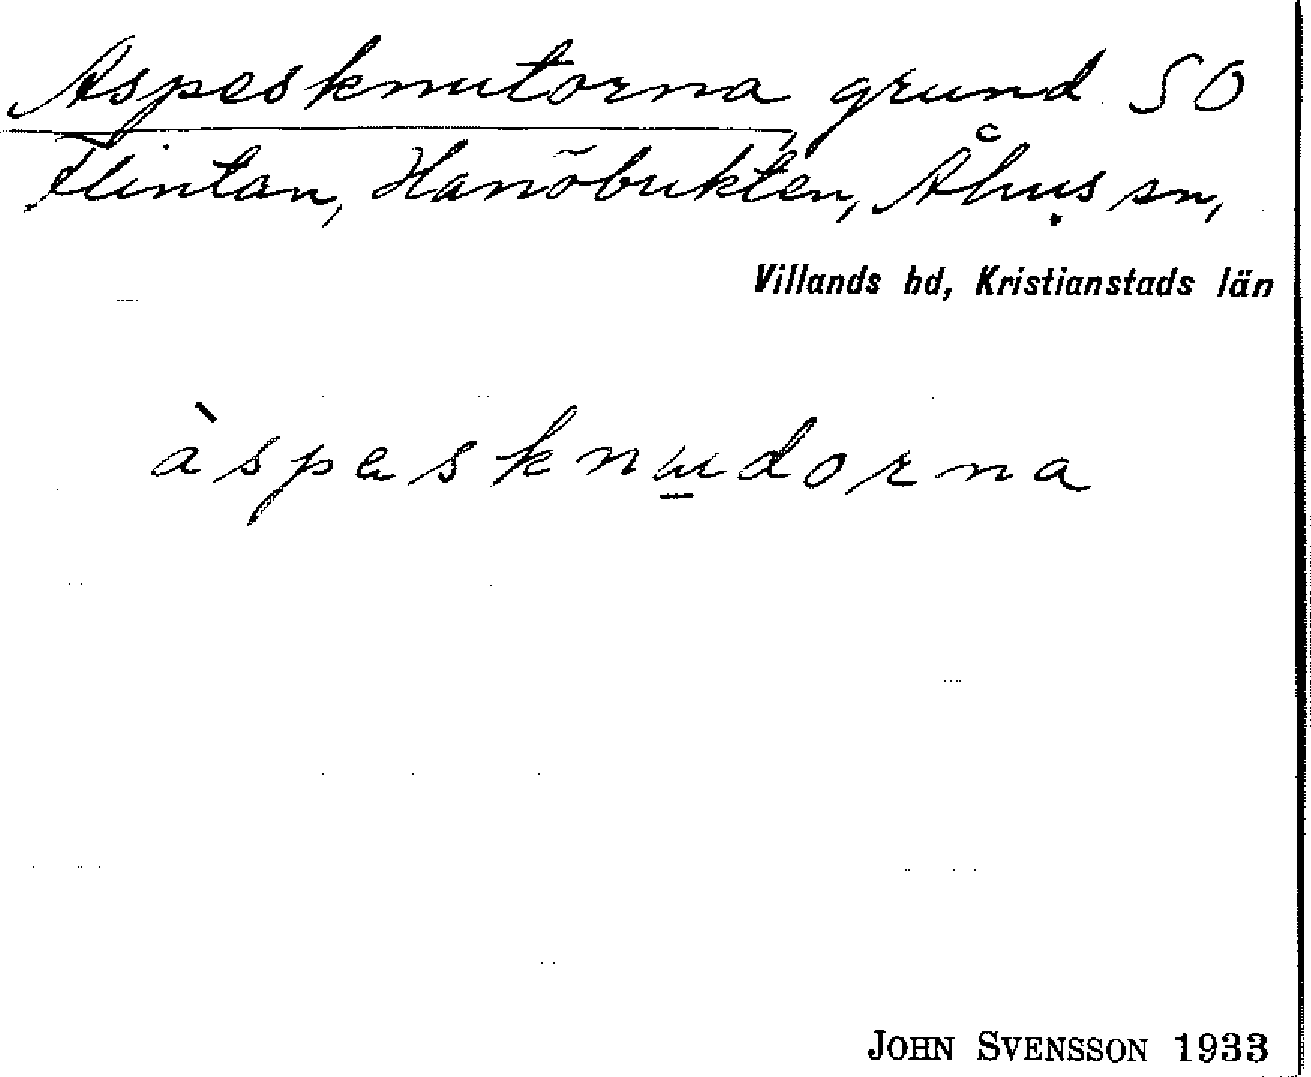 Aspesknutorna, grund SO
Flintan, Hanöbukten, Åhus sn,
Villands hd, Kristianstads län
àspesknu̲dorna
JOHN SVENSSON 1933